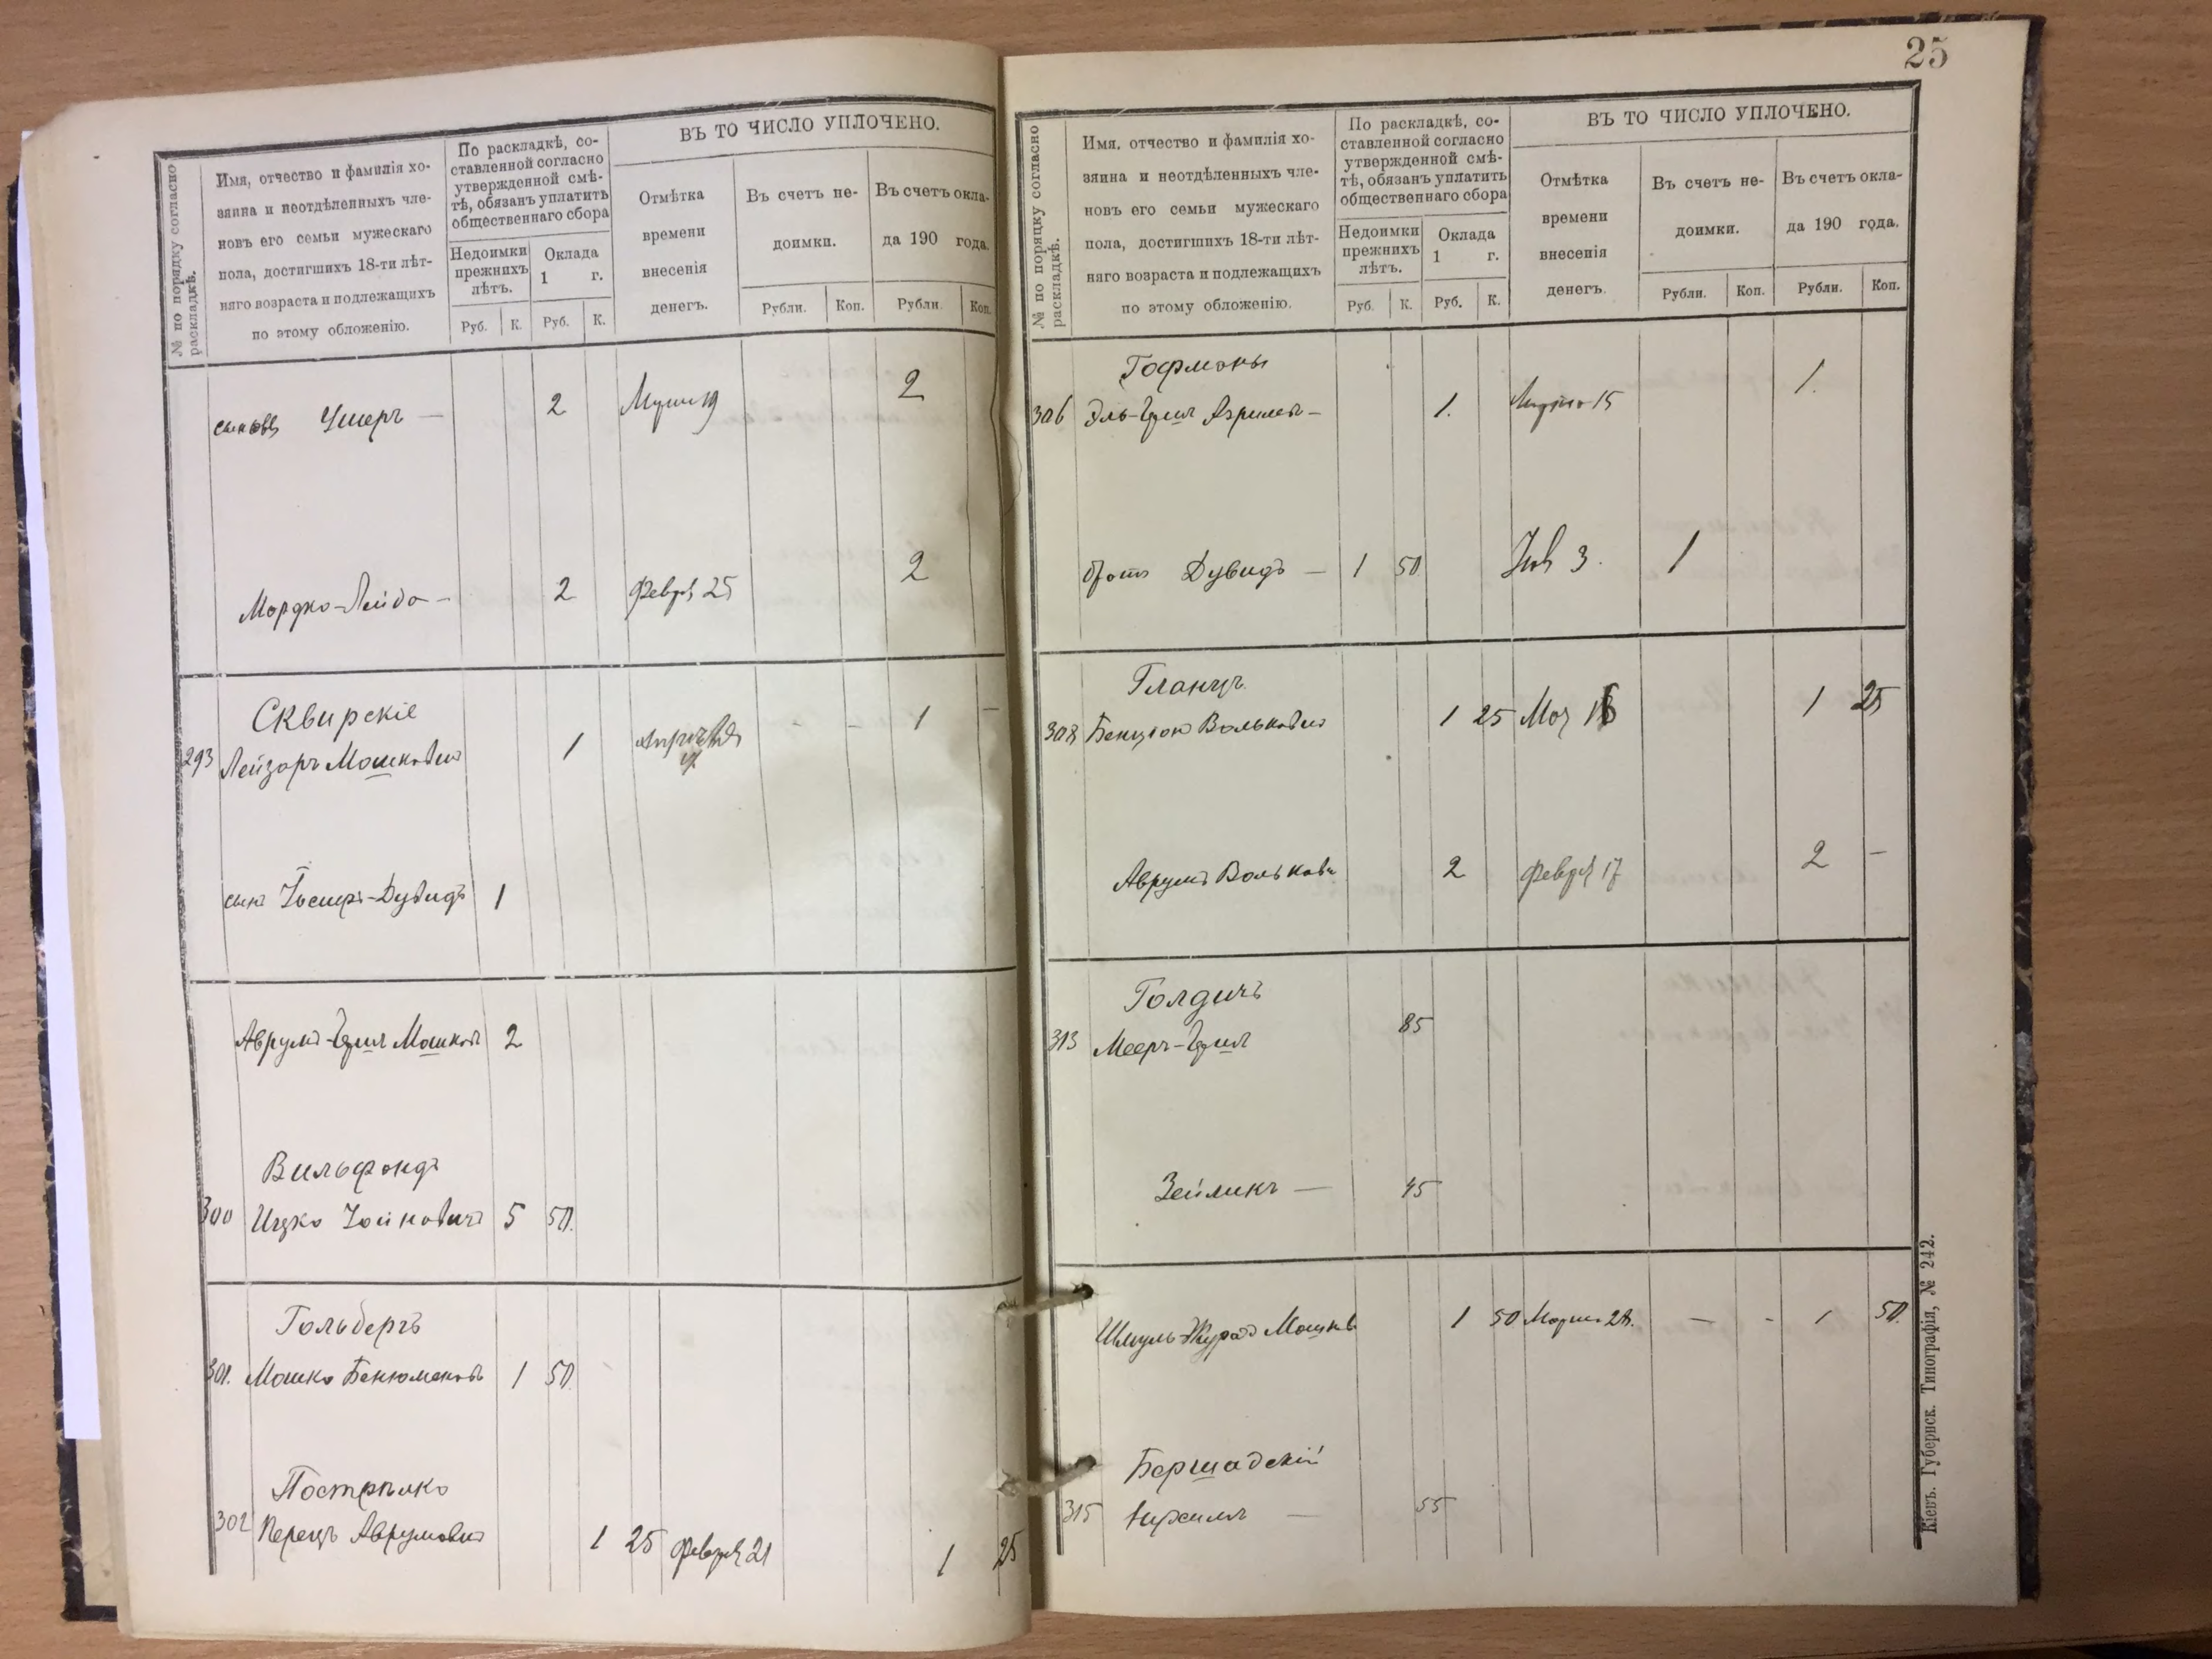 № по порядку согласно
раскладкѣ.
Имя, отчество и фамилія хо-
зяина и неотдѣленныхъ чле-
новъ его семьи мужескаго
пола, достигшихъ 18-ти лѣт-
няго возраста и подлежащихъ
по этому обложенію.
По раскладкѣ, со-
ставленной согласно
утвержденной смѣ-
тѣ, обязанъ уплатить
общественнаго сбора
Недоимки
прежнихъ
лѣтъ.
Оклада
1 г.
Руб. К. Руб. К.
ВЪ ТО ЧИСЛО УПЛОЧЕНО.
Отмѣтка
времени
внесенія
денегъ.
Въ счетъ не-
доимки.
Въ счетъ окла-
да 190 года.
Рубли. Коп. Рубли. Коп.
Ушеръ — 2 19 2
Мордко-Лейба - 2 Февр 25 2
Сквирскіе
293 Лейзаръ Мошковичъ 1 - - 1 -
сынъ Іосифъ-Дувидъ 1
Аврумъ-Цуил Мошков 2
Вильфондъ
300 Ицко Хаймовичъ 5 50.
Гольбергъ
301. Мошко Бенюминовъ 1 50
Пострѣлко
302 Перецъ Аврумовичъ 1 25 Февр 21 1 25
25
№ по поряцку согласно
раскладкѣ.
Имя, отчество и фамилія хо-
зяина и неотдѣленныхъ чле-
новъ его семьи мужескаго
пола, достигшихъ 18-ти лѣт-
няго возраста и подлежащихъ
по этому обложенію.
По раскладкѣ, со-
ставленной согласно
утвержденной смѣ-
тѣ, обязанъ уплатить
общественнаго сбора
Недоимки
прежнихъ
лѣтъ.
Оклада
1 г.
Руб. К. Руб. К.
ВЪ ТО ЧИСЛО УПЛОЧЕНО.
Отмѣтка
времени
внесенія
денегъ.
Въ счетъ не-
доимки.
Въ счетъ окла-
да 190 года.
Рубли. Коп. Рубли. Коп.
Гофманы
306 1. 15 1.
братъ Дувидъ — 1 50 Янв 3. 1
Гланцъ
308 Бенціонъ Вольковичъ 1 25 1 25
Аврумъ Вольков 2 Февр 17 2 —
Голдичъ
313 Мееръ-Цуил 85
Зейликъ — 45
Шмуль Мошков 1 50 Марта 28. — - 1 50.
Бершадскій
315 — 55
Кіевъ. Губернск. Типографія, № 242.